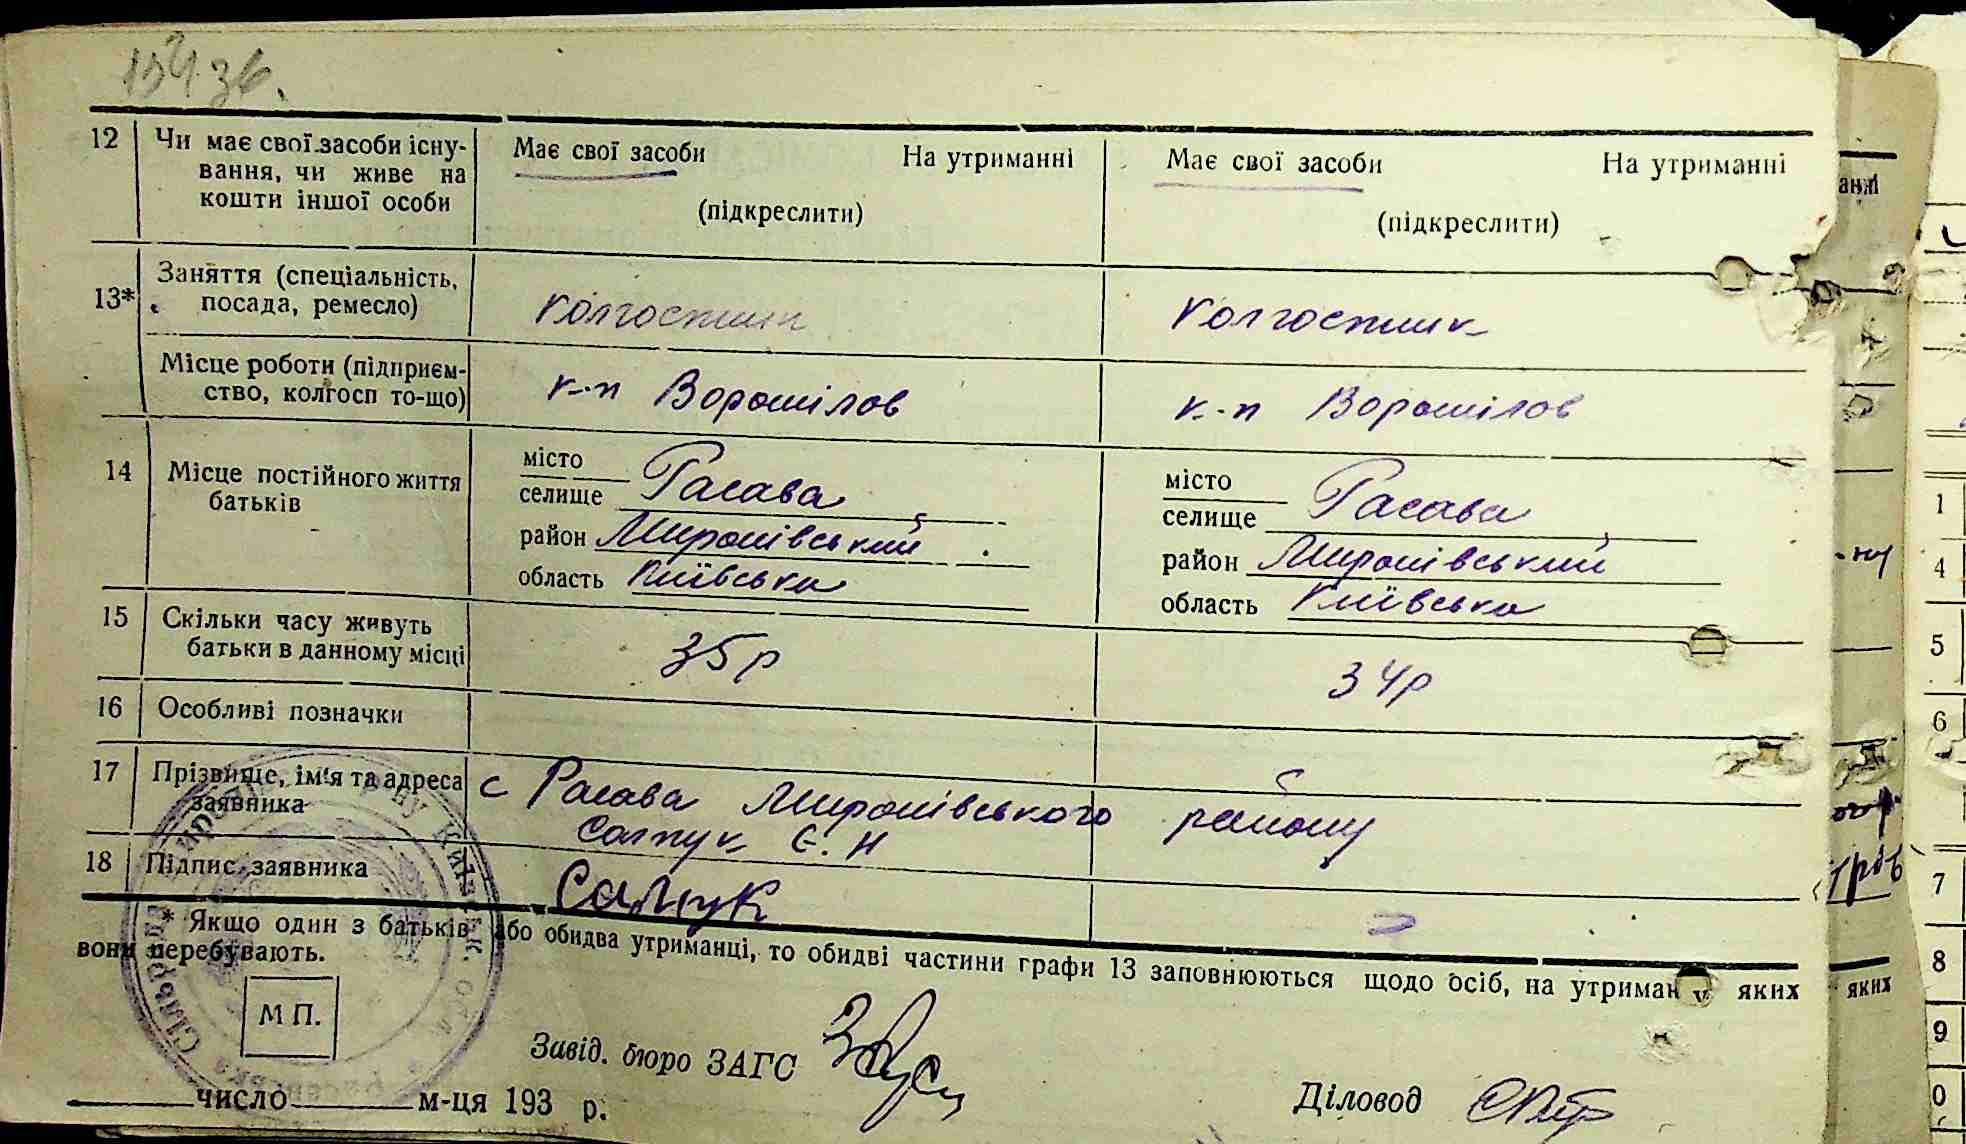 154 зв.
12 Чи має свої засоби існу- Має свої засоби На утриманні Має свої засоби На утриманні
вання, чи живе на
кошти іншої особи (підкреслити) (підкреслити)
13* Заняття (спеціальність, колгоспник колгоспник
посада, ремесло)
Місце роботи (підприєм- к-п Ворошілов к-п Ворошілов
ство, колгосп то-що)
14 Місце постійного життя місто місто
батьків селище Расава селище Расава
район Миронівський район Миронівський
область Київська область Київська
15 Скільки часу живуть 35р 34р
батьки в данному місці
16 Особливі позначки
17 Прізвище, ім'я та адреса с Расава Миронівського району
заявника Салтук Є. Н
18 Підпис заявника Салтук
* Якщо один з батьків або обидва утриманці, то обидві частини графи 13 заповнюються щодо осіб, на утриман яких
вони перебувають.
М П.
Завід. бюро ЗАГС
число м-ця 193 р. Діловод